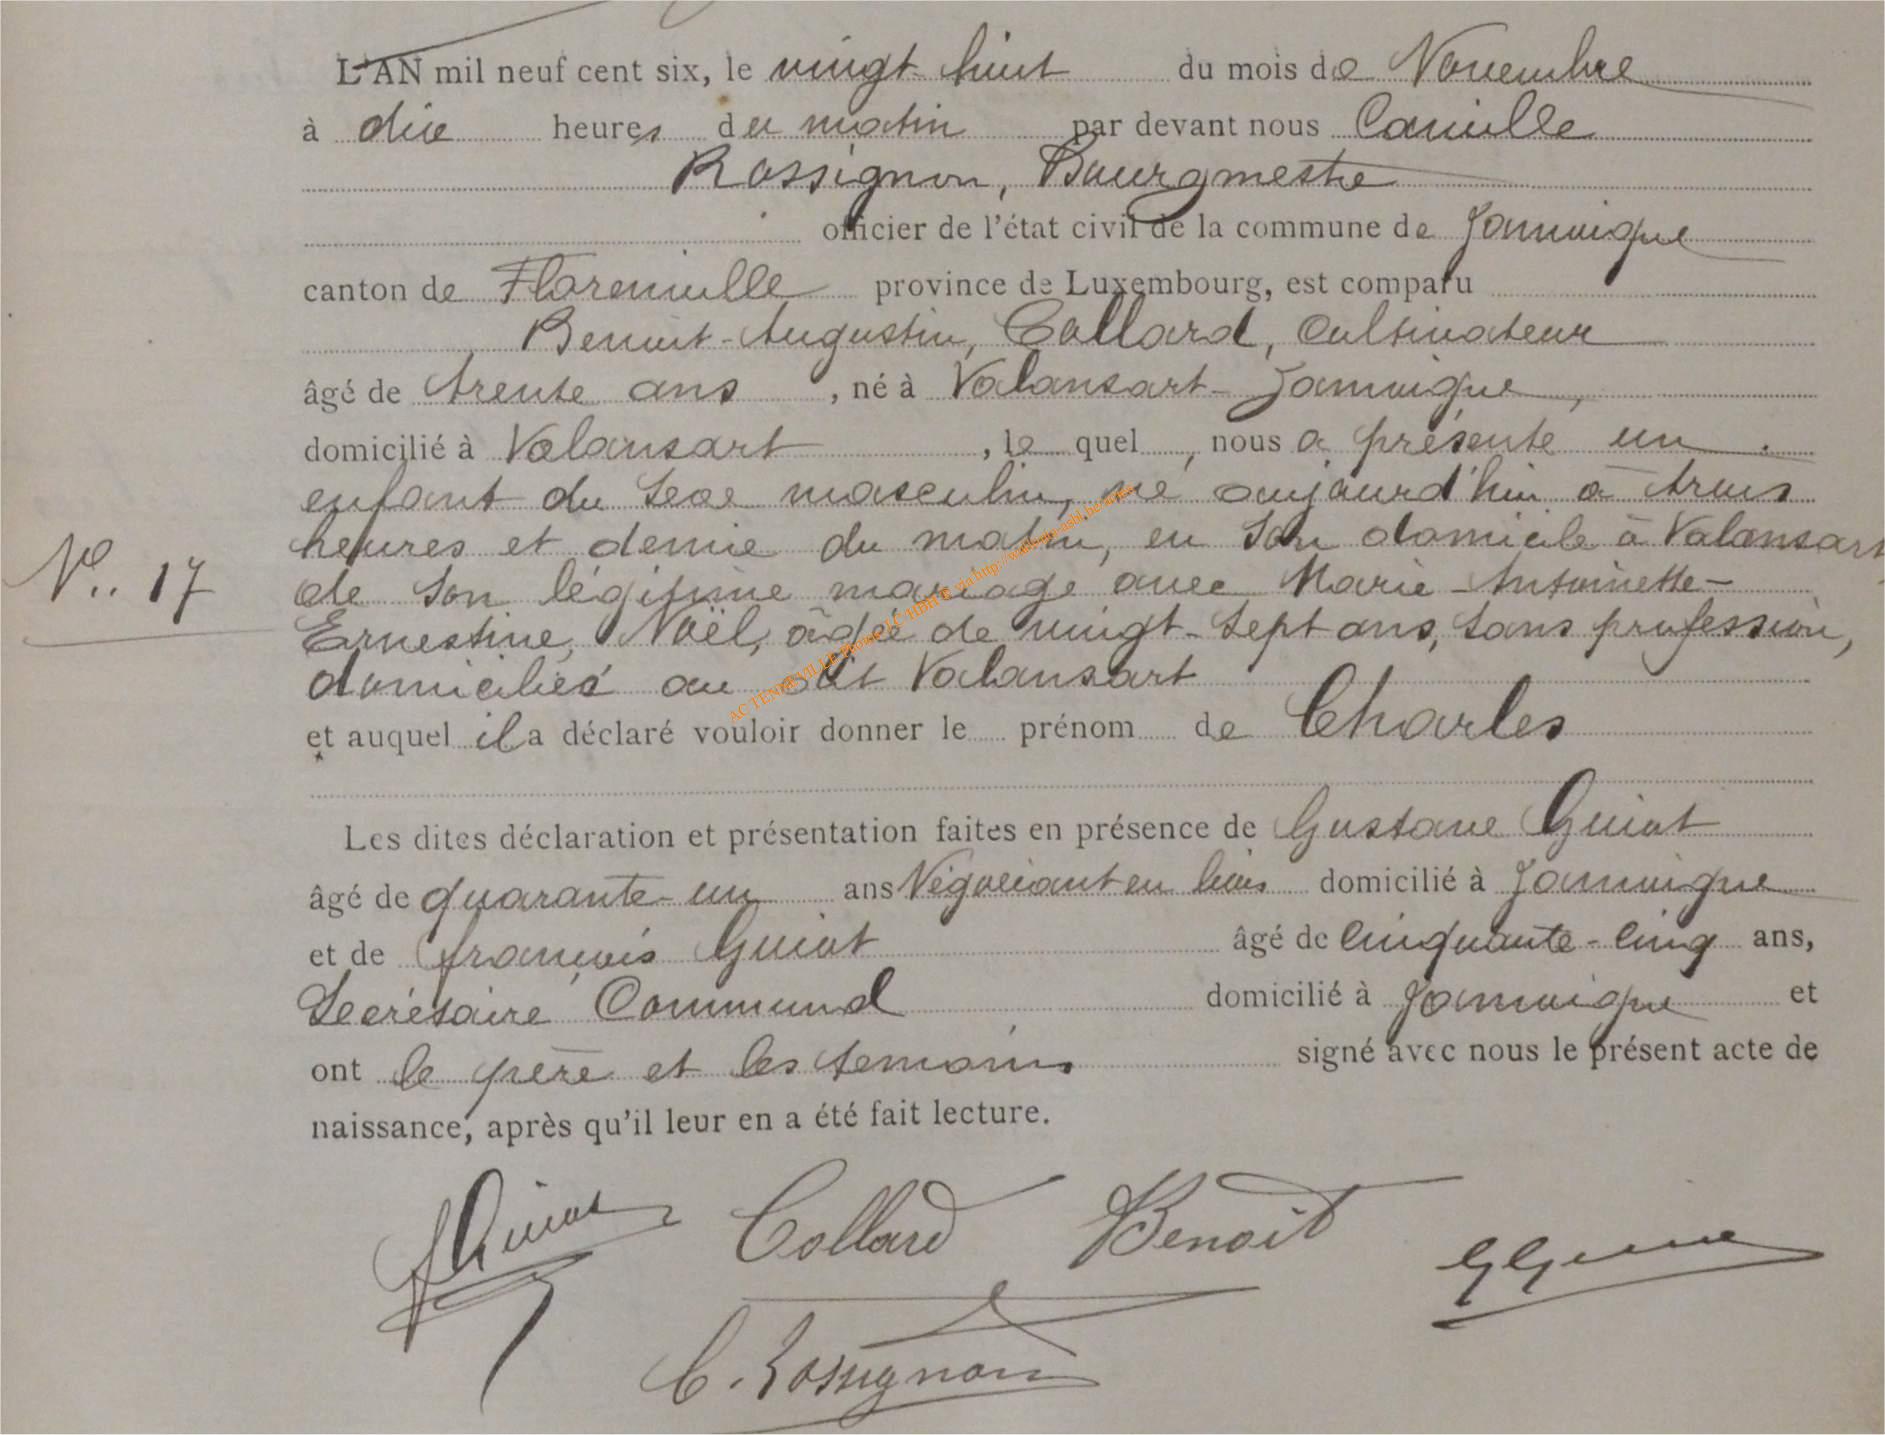 L'AN mil neuf cent six, le vingt huit du mois de Novembre
à dix heures du matin par devant nous Camille
Rossignon, Bourgmestre
officier de l'état civil de la commune de Jamoigne
canton de Florenville province de Luxembourg, est comparu
Benoit-Augustin, Collard, cultivateur
âgé de trente ans, né à Valansart-Jamoigne,
domicilié à Valansart, le quel, nous a présenté un
enfant du sexe masculin, né aujourd'hui à trois
heures et demie du matin, en son domicile à Valansart
N°. 17
de son légitime mariage avec Marie-Antoinette-
Ernestine, Noël, âgée de vingt-sept ans, sans profession,
domiciliés au dit Valansart
et auquel il a déclaré vouloir donner le prénom de Charles
Les dites déclaration et présentation faites en présence de Gustave Guiot
âgé de quarante-un ans Négociant en bois domicilié à Jamoigne
et de François Guiot âgé de cinquante-cinq ans,
Secrétaire Communal domicilié à Jamoigne et
ont le père et les témoins signé avec nous le présent acte de
naissance, après qu'il leur en a été fait lecture.
F Guiot Collard Benoit G Guiot
C. Rossignon